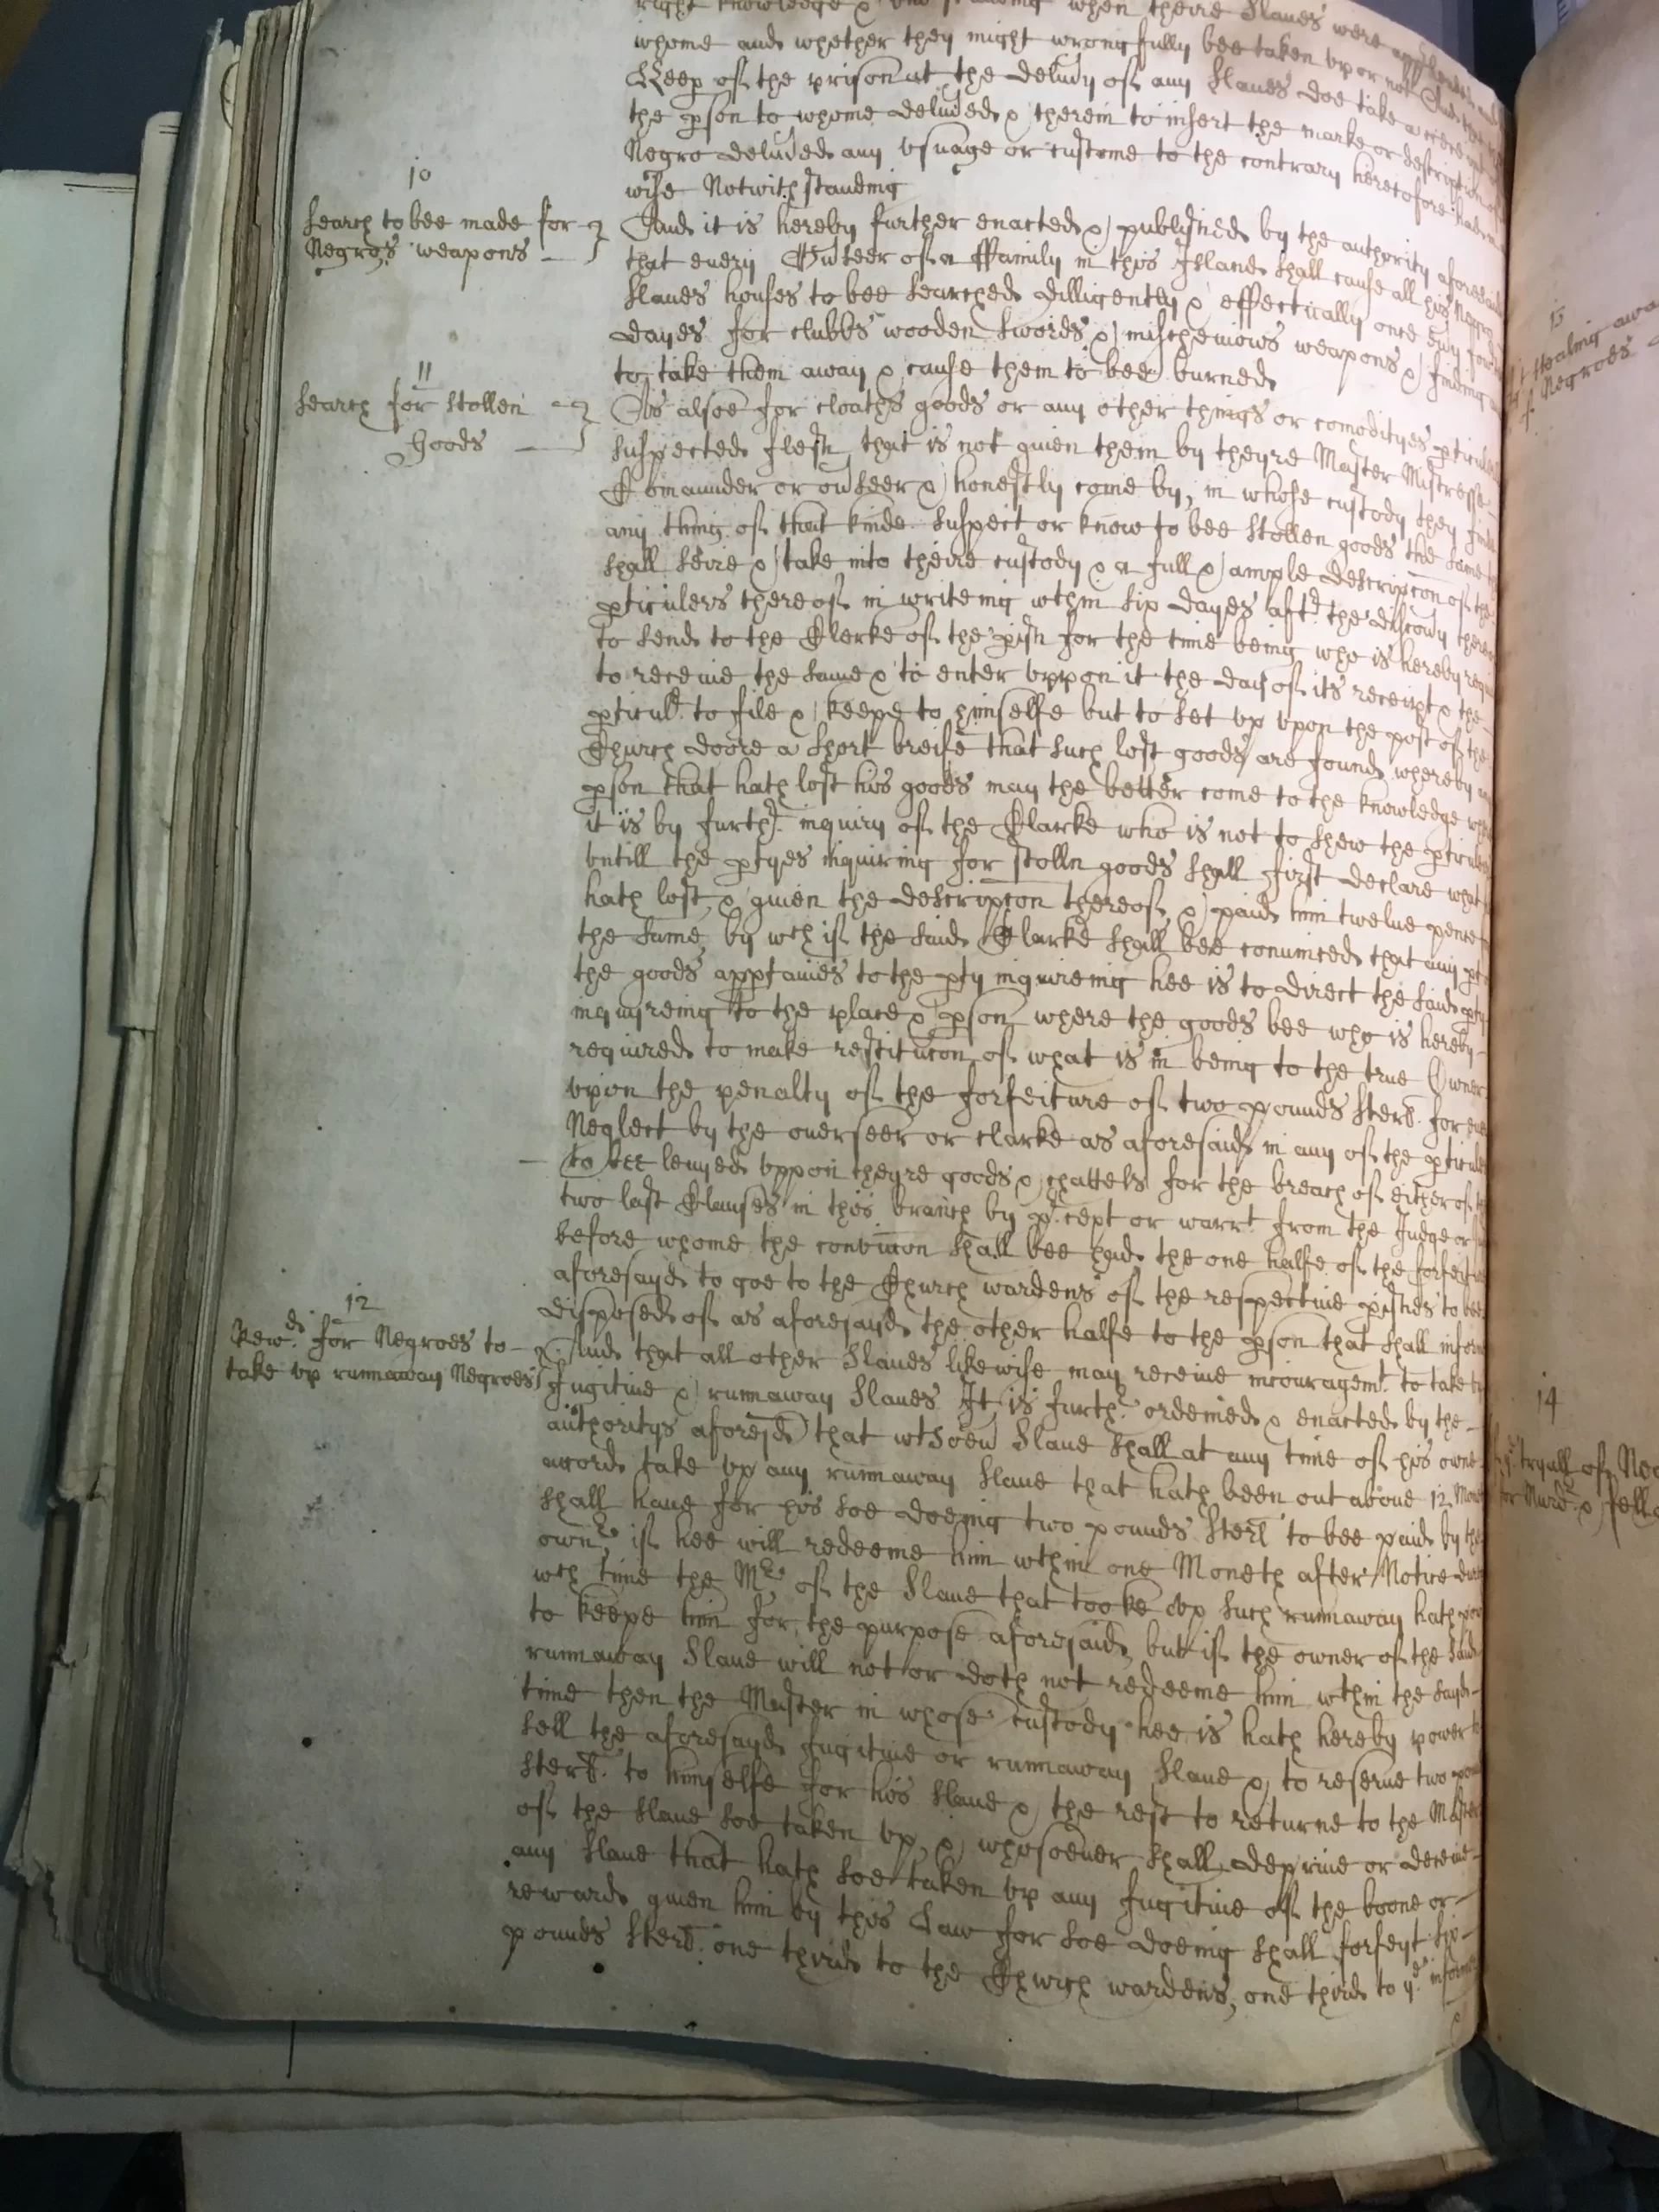 right knowledge & when theire Slaves were apprehended and
whome and whether they might wrongfully bee taken vp or not And that the
Keep of the prison at the deliuy of any Slaues doe take a
the pson to whome deliued & therein to insert the marke or description of
Negro deliued any vsuage or custome to the contrary heretofore had in
wise Notwithstanding
10
Search to bee made for
Negros weapons
And it is hereby further enacted & published by the authority aforesaid
that euery Ouseer of a ffamily in this Island shall cause all his Negro
Slaues houses to bee searched dilligently & effectically once euy
dayes for clubbs wooden swords & mischeuious weapons & finding
to take them away & cause them to bee burned
11
Search for stollen
goods
As alsoe for cloaths goods or any other things or comodityes pticul
suspected flesh that is not giuen them by theyre Master Mistresse
Comaunder or ouseer & honestly come by, in whose custody they finde
any thing of that kinde suspect or know to bee stollen goods the same
shall seire & take into theire custody & a full & ample descripcon of the
pticulers thereof in writeing wthin six dayes aftr the discouy thereof
to send to the Clerke of the pish for the time being who is hereby requi
to receiue the same & to enter vppon it the day of its receipt & the
pticulr to file & keepe to himselfe but to set vp vpon the post of the
Church doore a short breife that such lost goods are found whereby any
pson that hath lost his goods may the better come to the knowledge
it is by furthr inquiry of the Clarke who is not to shew the pticul
vntill the ptyes inquiring for stolln goods shall first declare what
hath lost & giuen the descripcon thereof & paid him twelue pence
the same, by wch if the said Clarke shall bee conuinced that any pt
the goods apptaines to the pty inquireing hee is to direct the said pty
inquyreing to the place & pson where the goods bee who is hereby
required to make restitucon of what is in being to the true Owner
vpon the penalty of the forfeiture of two pounds Sterl. for eue
Neglect by the ouerseer or clarke as aforesaid in any of the pticul
to bee leuyed vppon theyre goods & chattels for the breach of either of
two last Clauses in this branch by pr cept or warrt from the Judge or
before whome the conuiccon shall bee had the one halfe of the forfeitu
aforesayd to goe to the Church wardens of the respectiue pishes to bee
disposed of as aforesayd the other halfe to the pson that shall inform
12
Rewd. for Negroes to
take vp runnaway Negroes
And that all other Slaues likewise may receiue incouragemt. to take vp
fugitiue & runnaway Slaues It is furthr ordeined & enacted by the
authoritys aforesd that wtsoeu Slaue shall at any time of his owne
acord take vp any runnaway Slaue that hath been out aboue 12 Mon
shall haue for his soe doeing two pounds Sterl to bee paid by the
ownr if hee will redeeme him wthin one Moneth after Notice
wch time the Mr of the Slaue that tooke vp such runnaway hath pow
to keepe him for the purpose aforesaid, but if the owner of the said
runnaway Slaue will not or doth not redeeme him wthin the sayd
time then the Master in whose custody hee is hath hereby power to
sell the aforesayd fugitiue or runnaway Slaue & to reserue two pou
Sterl. to himselfe for his Slaue & the rest to returne to the Master
of the Slaue soe taken vp, & whosoeuer shall depriue or deceiue
any Slaue that hath soe taken vp any fugitiue of the boone or
reward giuen him by this Law for soe doeing shall forfeyt six
pounds Sterl. one third to the Church wardens, one third to ye inform
13
stealing away
Negroes
14
tryall of Neg
for Murdr & fell